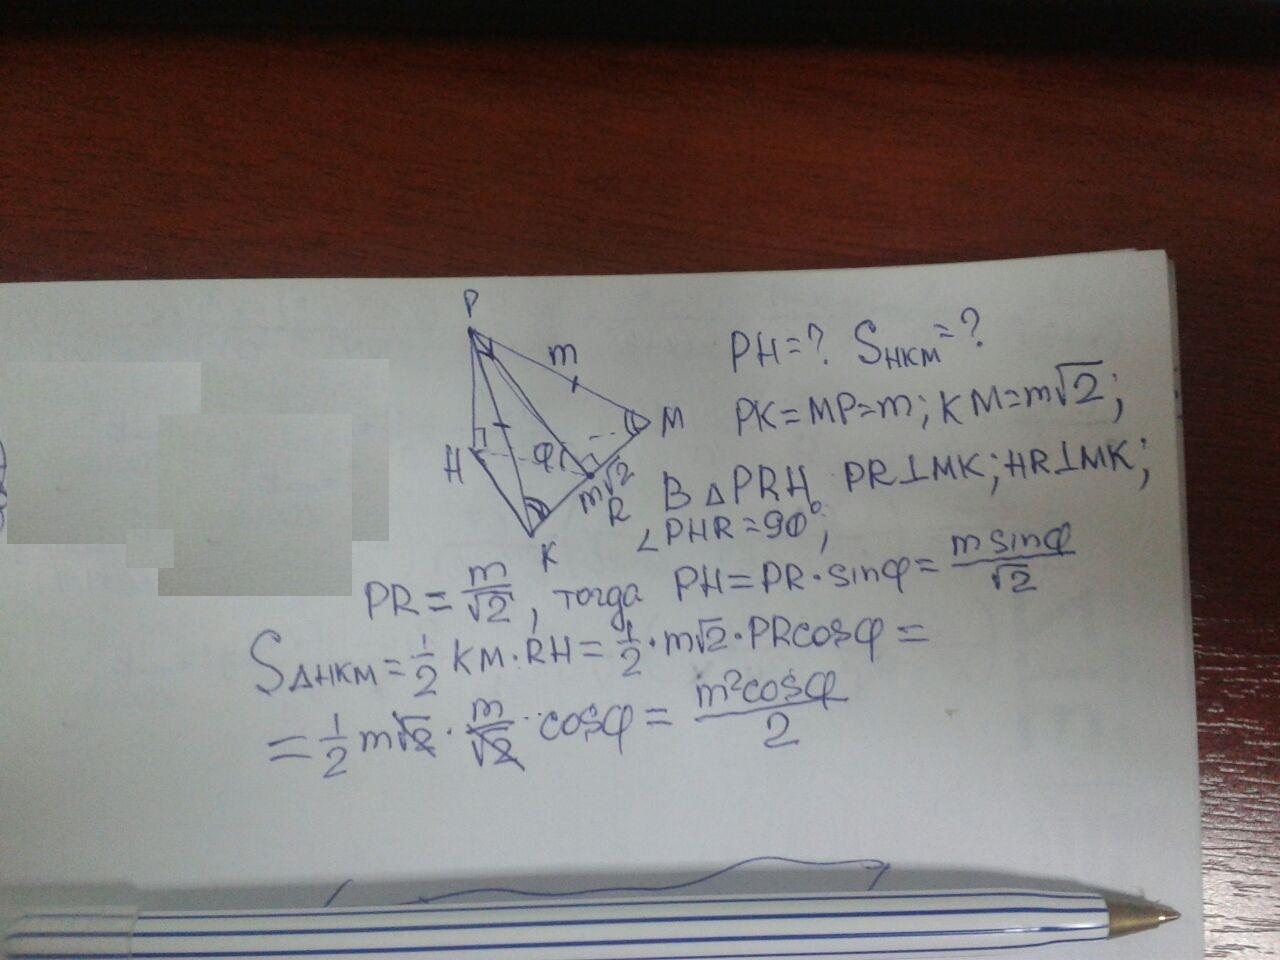 P
m
M
H
φ
m√2
R
K
PH=? S_HKM=?
PK=MP=m; KM=m√2;
В △PRH PR⊥MK; HR⊥MK;
∠PHR=90°;
PR=m/√2, тогда PH=PR·sinφ=m sinφ/√2
S△HKM=1/2 KM·RH=1/2·m√2·PRcosφ=
=1/2 m√2·m/√2·cosφ=m²cosφ/2